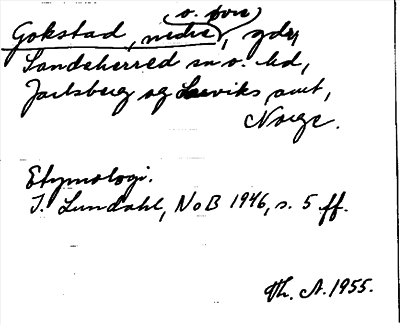 o. övre
Gokstad, nedre, gdr,
Sandeherred sn o. hd,
Jarlsberg og Larviks amt,
Norge.
Etymologi.
I. Lundahl, NoB 1946, s. 5 ff.
Th. A. 1955.